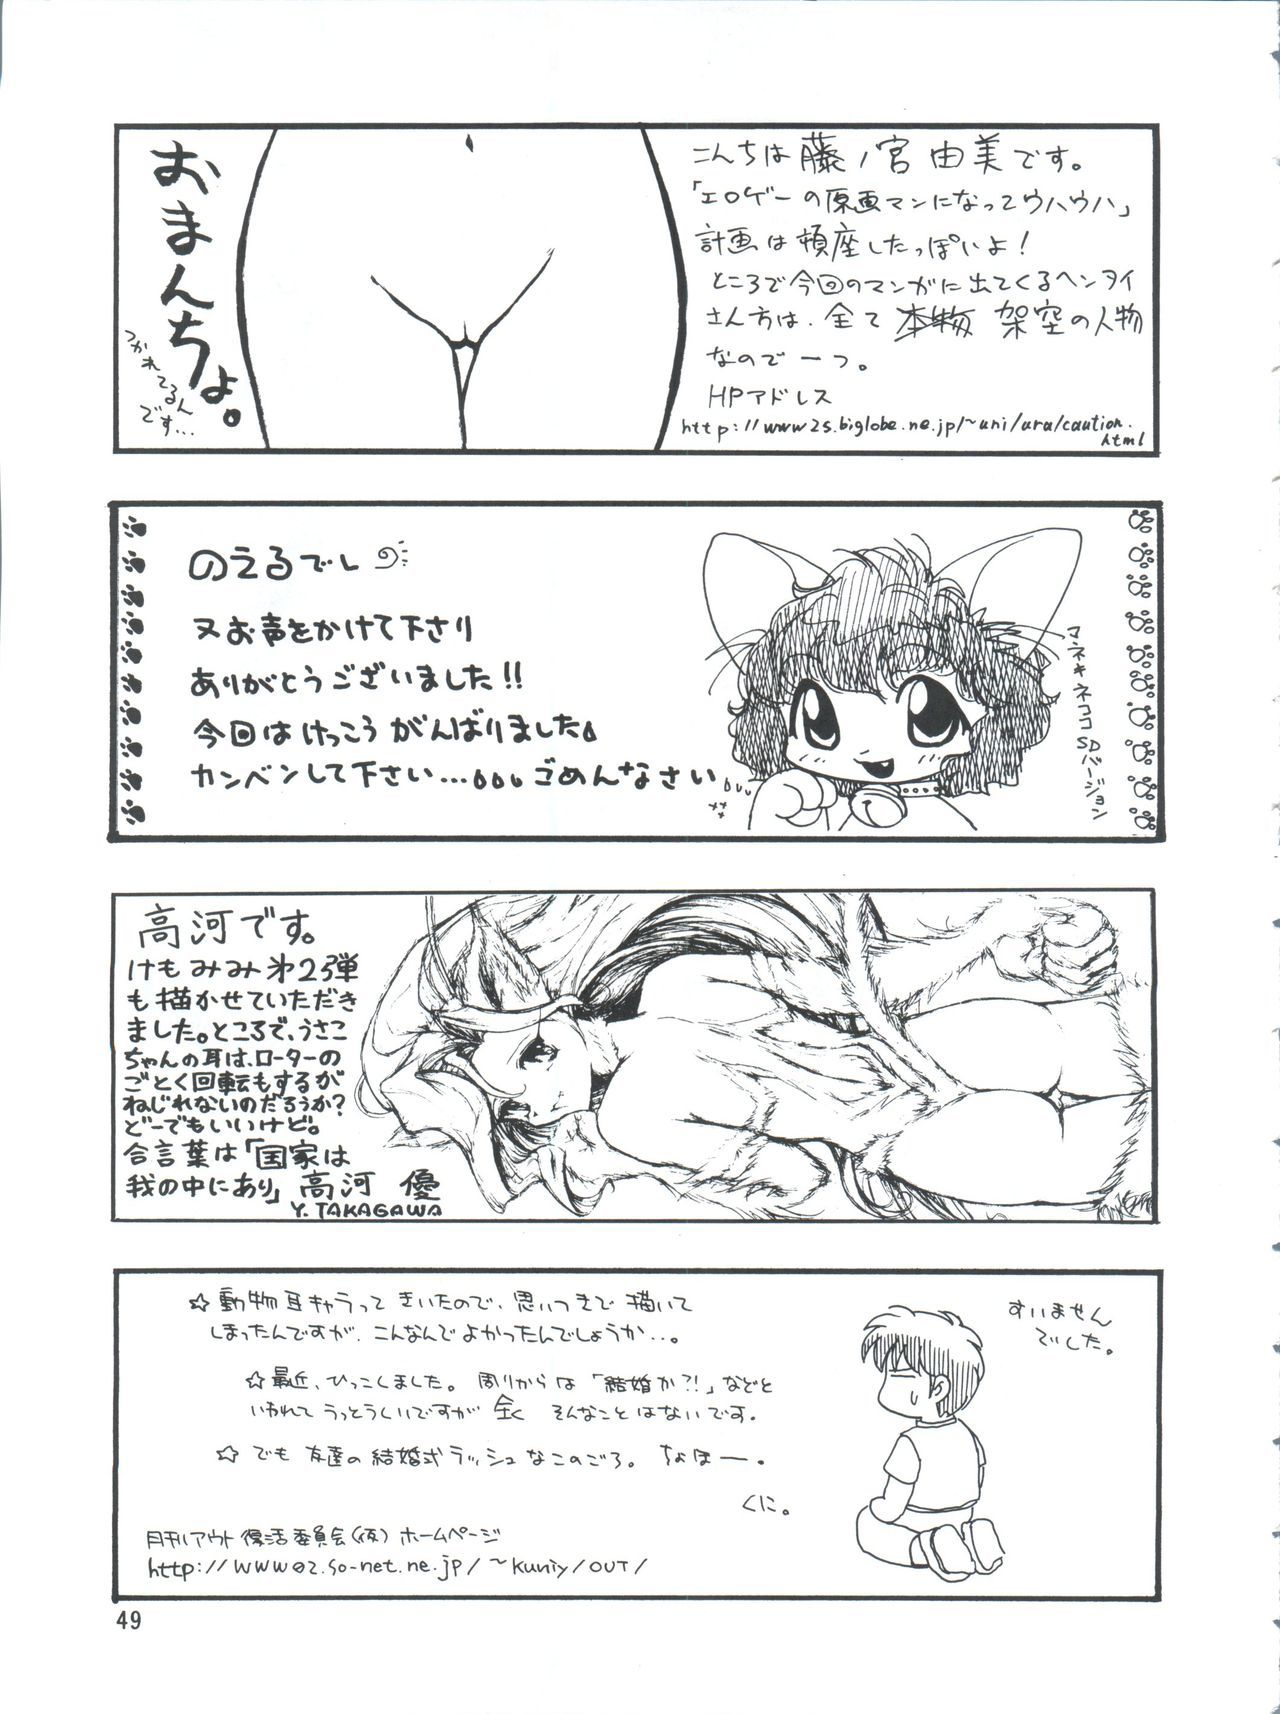 おまんちょ。
つかれてるん
です…
こんちは藤ノ宮由美です。
「エロゲーの原画マンになってウハウハ」
計画は頓座したっぽいよ！
ところで今回のマンガに出てくるヘンタイ
さん方は、全て本物架空の人物
なのでーっ。
HPアドレス
http://www2s.biglobe.ne.jp/~uni/ura/caution.
html
のえるでし
又お声をかけて下さり
ありがとうございました!!
今回はけっこうがんばりました。
カンベンして下さい…ごめんなさい
マネキネココ
SDバージョン
高河です。
けもみみ第2弾
も描かせていただき
ました。ところで、うさこ
ちゃんの耳は、ローターの
ごとく回転もするが
ねじれないのだろうか?
どーでもいいけど。
合言葉は「国家は
我の中にあり」高河 優
Y.TAKAGAWA
☆動物耳キャラってきいたので、思いつきで描いて
しまったんですが、こんなんでよかったんでしょうか…。
☆最近、ひっこしました。周りからは「結婚か?!」などと
いわれてうっとうしいですが全く そんなことはないです。
☆でも友達の結婚式ラッシュなこのごろ。ちょほー。
くに。
すいません
でした。
月刊アウト復活委員会(仮)ホームページ
http://www02.so-net.ne.jp/~kuniy/OUT/
49